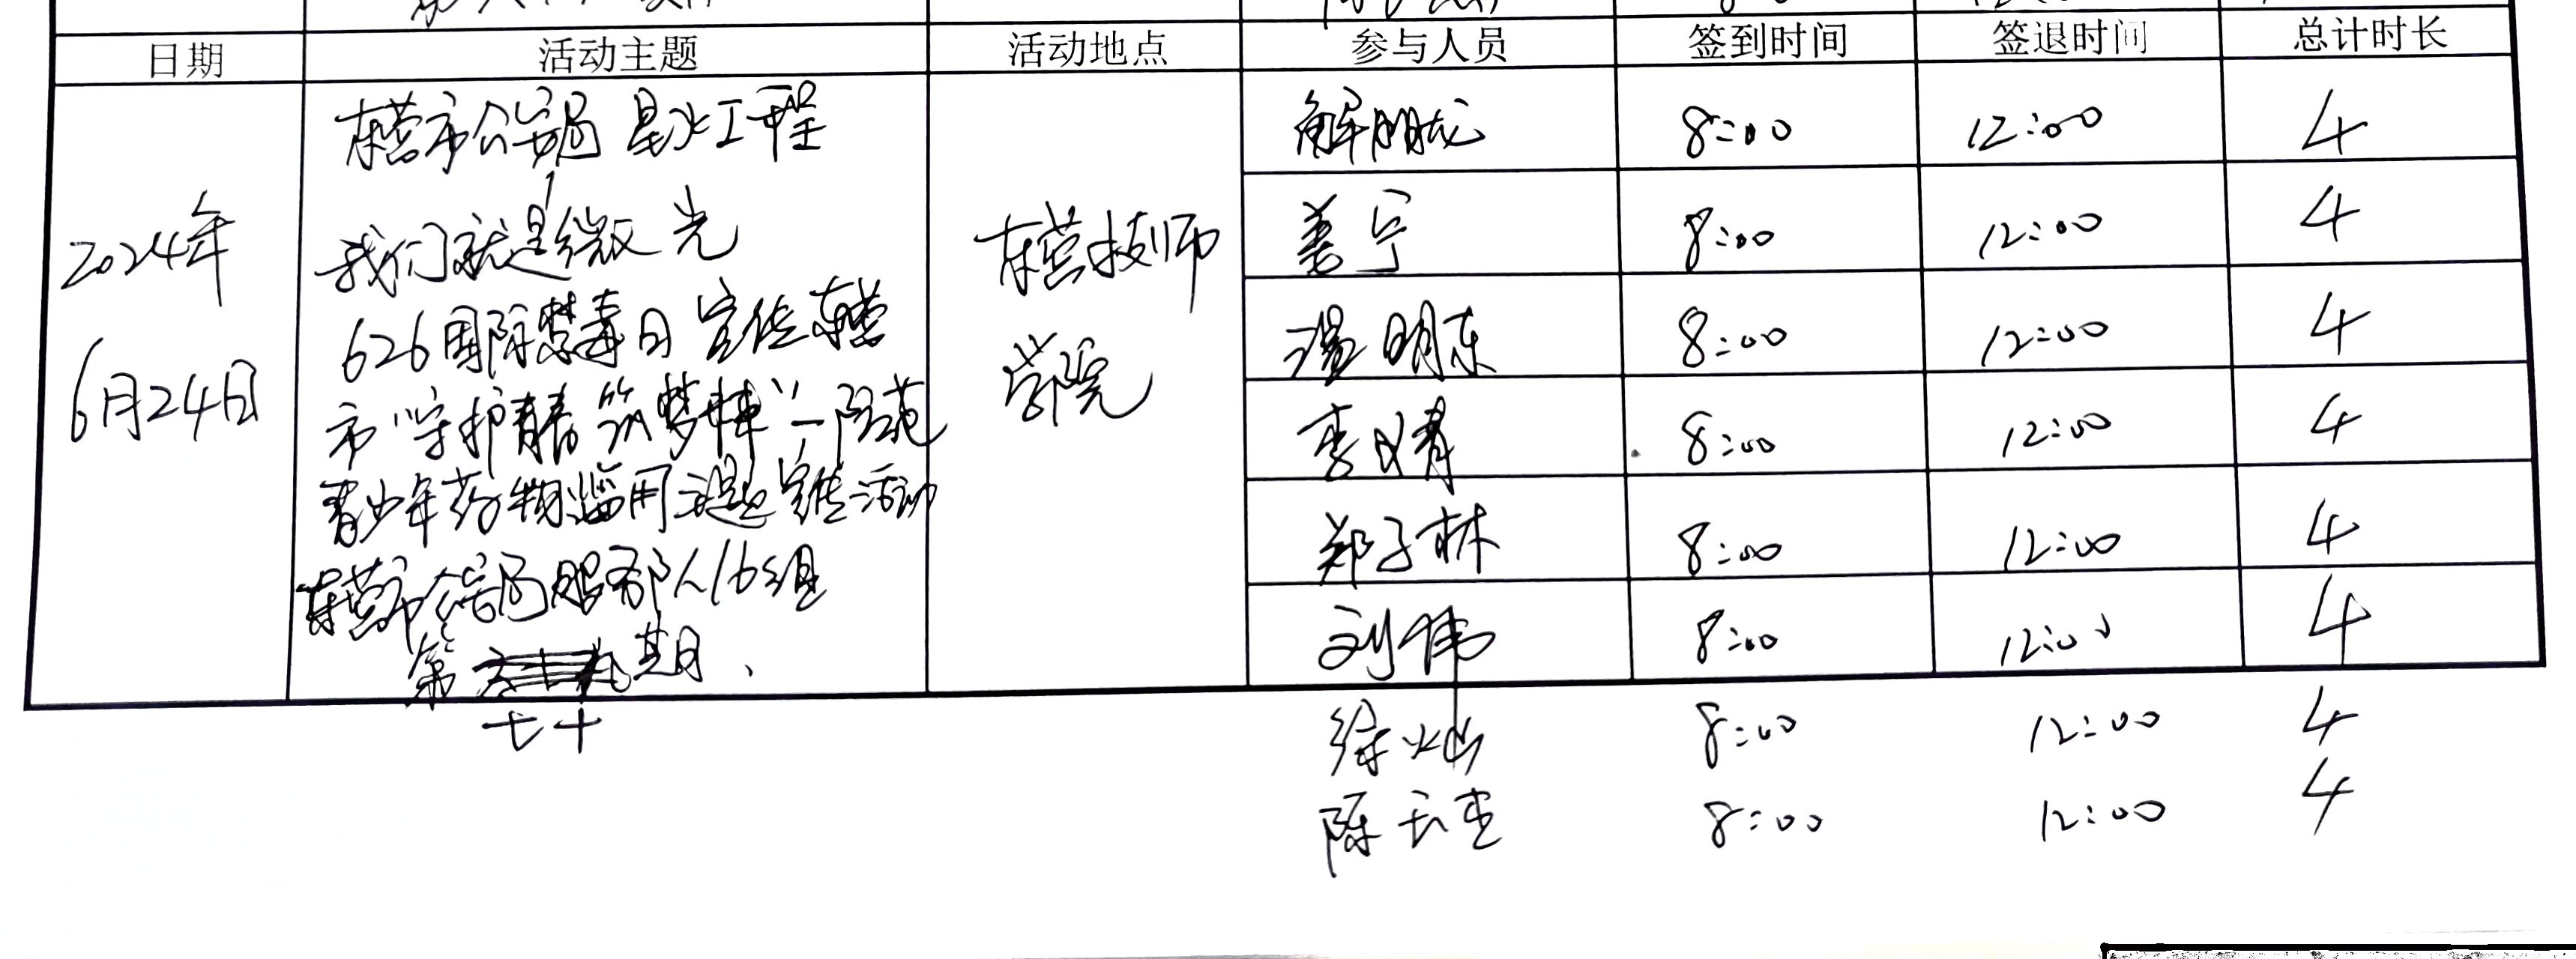 日期 活动主题 活动地点 参与人员 签到时间 签退时间 总计时长
2024年
6月24日
东营市公安局 星火工程
我们就是微光
626国际禁毒日宣传东营
市"守护青春 筑梦"一防范
青少年药物滥用主题宣传活动
东营市公安局服务队16组
第 期
七十
东营技师
学院
解朋龙 8:00 12:00 4
姜宁 8:00 12:00 4
温明东 8:00 12:00 4
李 8:00 12:00 4
郑子林 8:00 12:00 4
刘伟 8:00 12:00 4
徐灿 8:00 12:00 4
陈 8:00 12:00 4